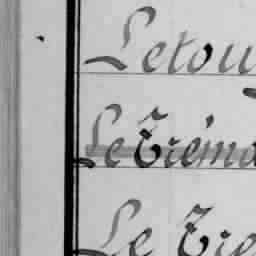 Letou
Le Tréma
Le Tre